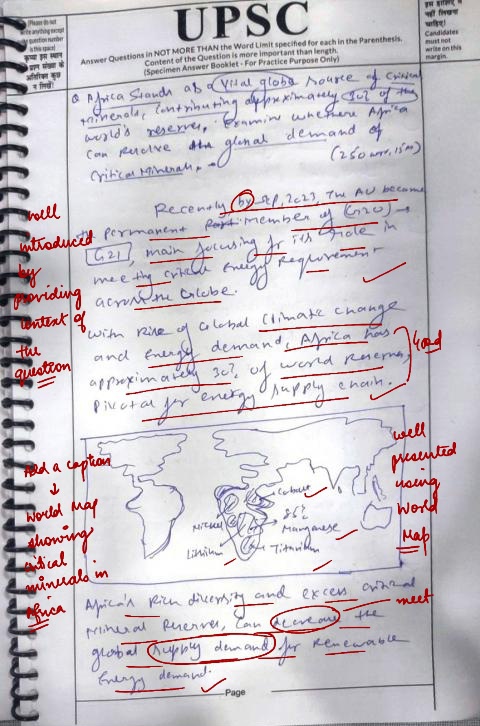 (Please do not
write anything except
the question number
in this space)
कृपया इस स्थान
प्रश्न संख्या के
अतिरिक्त कुछ
न लिखें
UPSC
Answer Questions in NOT MORE THAN the Word Limit specified for each in the Parenthesis.
Content of the Question is more important than length.
(Specimen Answer Booklet - For Practice Purpose Only)
नहीं लिखना
चाहिए
Candidates
must not
write on this
margin.
Q Africa Stands as a vital global source of critical
Minerals, Contributing approximately 30% of the
world's reserves. Examine whether Africa
Can Resolve the global demand of
Critical Minerals.
(250 words, 15M)
Recently by Sep, 2023, The AU became
the permanent Member of G20 →
G21, main focusing for its role in
meeting critical Energy Requirement
across the Globe.
well
introduced
by
providing
context of
the
question
With Rise of Global Climate change
and energy demand, Africa has
approximately 30% of world Reserves,
Pivotal for energy supply chain.
Good
Add a caption
↓
World Map
showing
critical
minerals in
Africa
Cobalt
Nickel
86%
Manganese
Lithium
Titanium
well
presented
using
World
Map
Africa's Rich diversity and excess critical
Mineral Reserves, Can decrease the
meet
global supply demand for Renewable
Energy demand.
Page